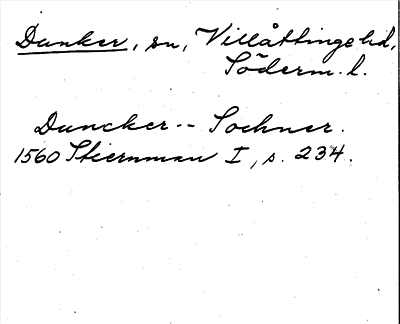 Dunker, sn, Villåttinge hd,
Söderm. l.
Duncker -- Sochner.
1560 Stiernman I, s. 234.